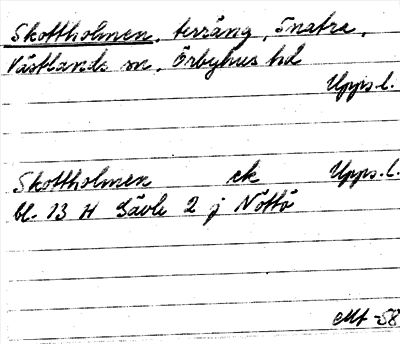 Skottholmen, terräng, Snatra,
Västlands sn, Örbyhus hd
Upps. l.
Skottholmen ek Upps. l.
bl. 13 H Gävle 2 j Nöttö
-58